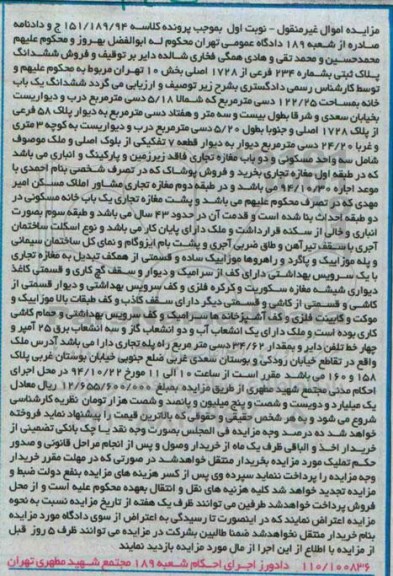 مزایده اموال غیرمنقول - نوبت اول بموجب پرونده کلاسه ۱۵۱/۱۸۹/۹۴ ج و دادنامه
صادره از شعبه ۱۸۹ دادگاه عمومی تهران محکوم له ابوالفضل بهروز و محکوم علیهم
محمدحسین و محمد تقی و هادی همگی فخاری شالده دایر بر توقیف و فروش ششدانگ
پلاک ثبتی بشماره ۲۳۴ فرعی از ۱۷۲۸ اصلی بخش ۱۰ تهران مربوط به محکوم علیهم و
توسط کارشناس رسمی دادگستری بشرح زیر توصیف و ارزیابی می گردد ششدانگ یک باب
خانه بمساحت ۱۲۲/۲۵ دسی مترمربع که شمالا ۵/۱۸ دسی مترمربع درب و دیواریست
بخیابان سعدی و شرقا بطول بیست و سه متر و هفتاد دسی مترمربع به دیوار پلاک ۵۸ فرعی
از پلاک ۱۷۲۸ اصلی و جنوبا بطول ۵/۲۰ دسی مترمربع درب و دیواریست به کوچه ۳ متری
و غربا ۲۴/۲۰ دسی مترمربع دیوار به دیوار قطعه ۷ تفکیکی از بلوک اصلی و ملک موصوف
شامل سه واحد مسکونی و دو باب مغازه تجاری فاقد زیرزمین و پارکینگ و انباری می باشد
که در طبقه اول مغازه تجاری بخرید و فروش پوشاک که در تصرف شخصی بنام احمدی با
موعد اجاره ۹۴/۱۰/۳۰ می باشد و در طبقه دوم مغازه تجاری مشاور املاک مسکن امیر
مهدی که در تصرف محکوم علیهم می باشد و پشت مغازه تجاری یک باب خانه مسکونی در
دو طبقه احداث بنا شده است و قدمت آن در حدود ۴۳ سال می باشد و طبقه سوم بصورت
انباری و خالی از سکنه قرارداشت و ملک دارای پایان کار می باشد و نوع اسکلت ساختمان
آجری با سقف تیرآهن و طاق ضربی آجری و پشت بام ایزوگام و نمای کل ساختمان سیمانی
و پله موزاییک و پاگرد و راهروها موزاییک ساده و قسمتی از همکف تبدیل به مغازه تجاری
با یک سرویس بهداشتی دارای کف از سرامیک و دیوار و سقف گچ کاری و قسمتی کاغذ
دیواری شیشه مغازه سکوریت و کرکره فلزی و کف سرویس بهداشتی و دیوار قسمتی از
کاشی و قسمتی از کاشی و قسمتی دیگر دارای سقف کاذب و کف طبقات بالا موزاییک و
موکت و کابینت فلزی و کف آشپزخانه ها سرامیک و کف سرویس بهداشتی و حمام کاشی
کاری بوده است و ملک دارای یک انشعاب آب و دو انشعاب گاز و سه انشعاب برق ۲۵ آمپر و
چهار خط تلفن دایر و بمقدار ۳۴/۶۲ دسی متر مربع راه پله تجاری دارا می باشد آدرس ملک
واقع در تقاطع خیابان رودکی و بوستان سعدی غربی ضلع جنوبی خیابان بوستان غربی پلاک
۱۵۸ و ۱۶۰ می باشد مقرر است از ساعت ۱۰ الی ۱۱ مورخ ۹۴/۱۰/۲۲ در محل اجرای
احکام مدنی مجتمع شهید مطهری از طریق مزایده بمبلغ ۱۲/۶۵۵/۶۰۰/۰۰۰ ریال معادل
یک میلیارد و دویست و شصت و پنج میلیون و پانصد و شصت هزار تومان نظریه کارشناسی
شروع می شود و به هر شخص حقیقی و حقوقی که بالاترین قیمت را پیشنهاد نماید فروخته
خواهد شد ده درصد وجه مزایده فی المجلس بصورت وجه نقد یا چک بانکی تضمینی از
خریدار اخذ و الباقی ظرف یک ماه از خریدار وصول و پس از انجام مراحل قانونی و صدور
حکم تملیک مورد مزایده بخریدار منتقل خواهدشد در صورتی که در مهلت مقرر خریدار
وجه مزایده را پرداخت ننماید سپرده وی پس از کسر هزینه های مزایده بنفع دولت ضبط و
مزایده تجدید خواهد شد کلیه هزینه های نقل و انتقال بعهده محکوم علیه است و از محل
فروش پرداخت خواهدشد طرفین می توانند ظرف یک هفته از تاریخ مزایده نسبت به نحوه
مزایده اعتراض نمایند که در اینصورت تا رسیدگی به اعتراض از سوی دادگاه مورد مزایده
بنام خریدار منتقل نخواهدشد ضمنا طالبین بشرکت در مزایده می توانند ظرف ۵ روز قبل
از مزایده با اطلاع از این اجرا از مال مورد مزایده بازدید نمایند
۱۱۰/۱۰۰۸۳۶ دادورز اجرای احکام شعبه ۱۸۹ مجتمع شهید مطهری تهران